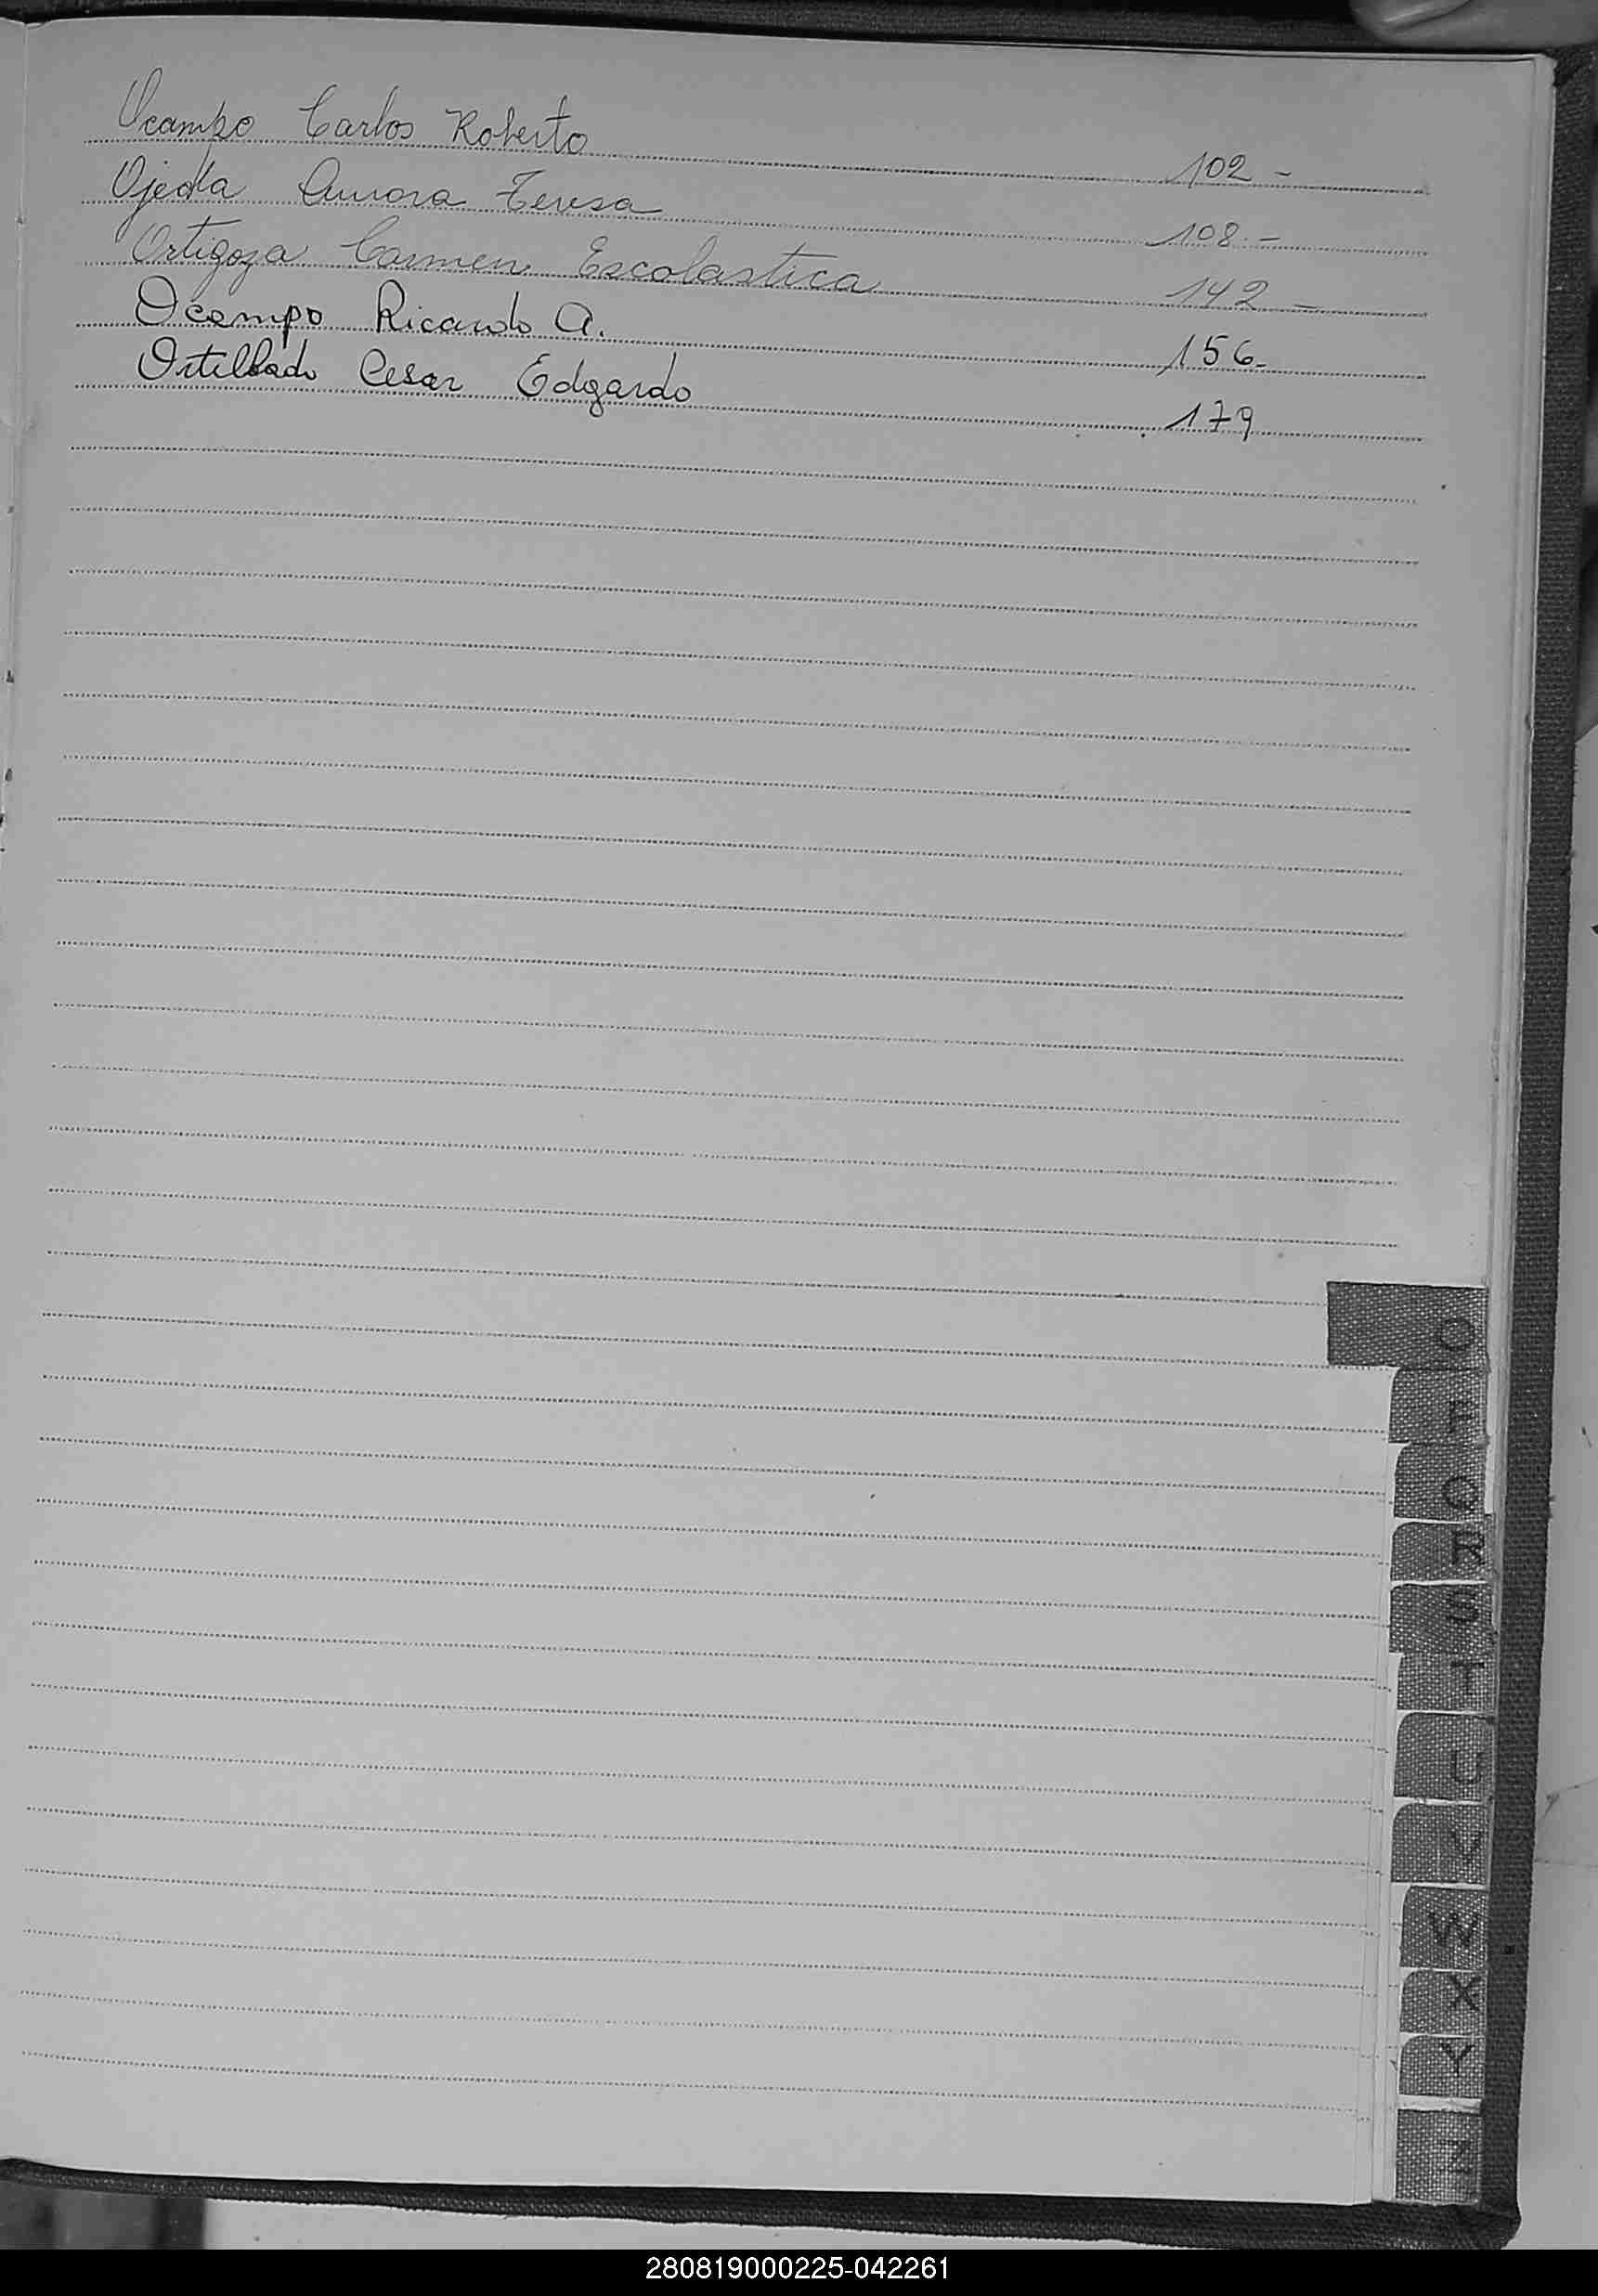 Ocampo Carlos Roberto 102 -
Ojeda Aurora Teresa 108. -
Ortigoza Carmen Escolastica 142 -
Ocampo Ricardo A. 156-
Cesar Edgardo 179
O
P
Q
R
S
T
U
V
W
X
Y
Z
280819000225-042261